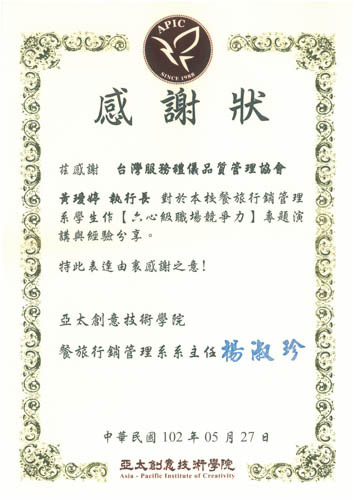 APIC
SINCE 1988
感謝狀
茲感謝 台灣服務禮儀品質管理協會
黃瓊婷 執行長 對於本校餐旅行銷管理
系學生作【六心級職場競爭力】專題演
講與經驗分享。
特此表達由衷感謝之意!
亞太創意技術學院
餐旅行銷管理系系主任 楊淑珍
中華民國 102 年 05 月 27 日
亞太創意技術學院
Asia - Pacific Institute of Creativity